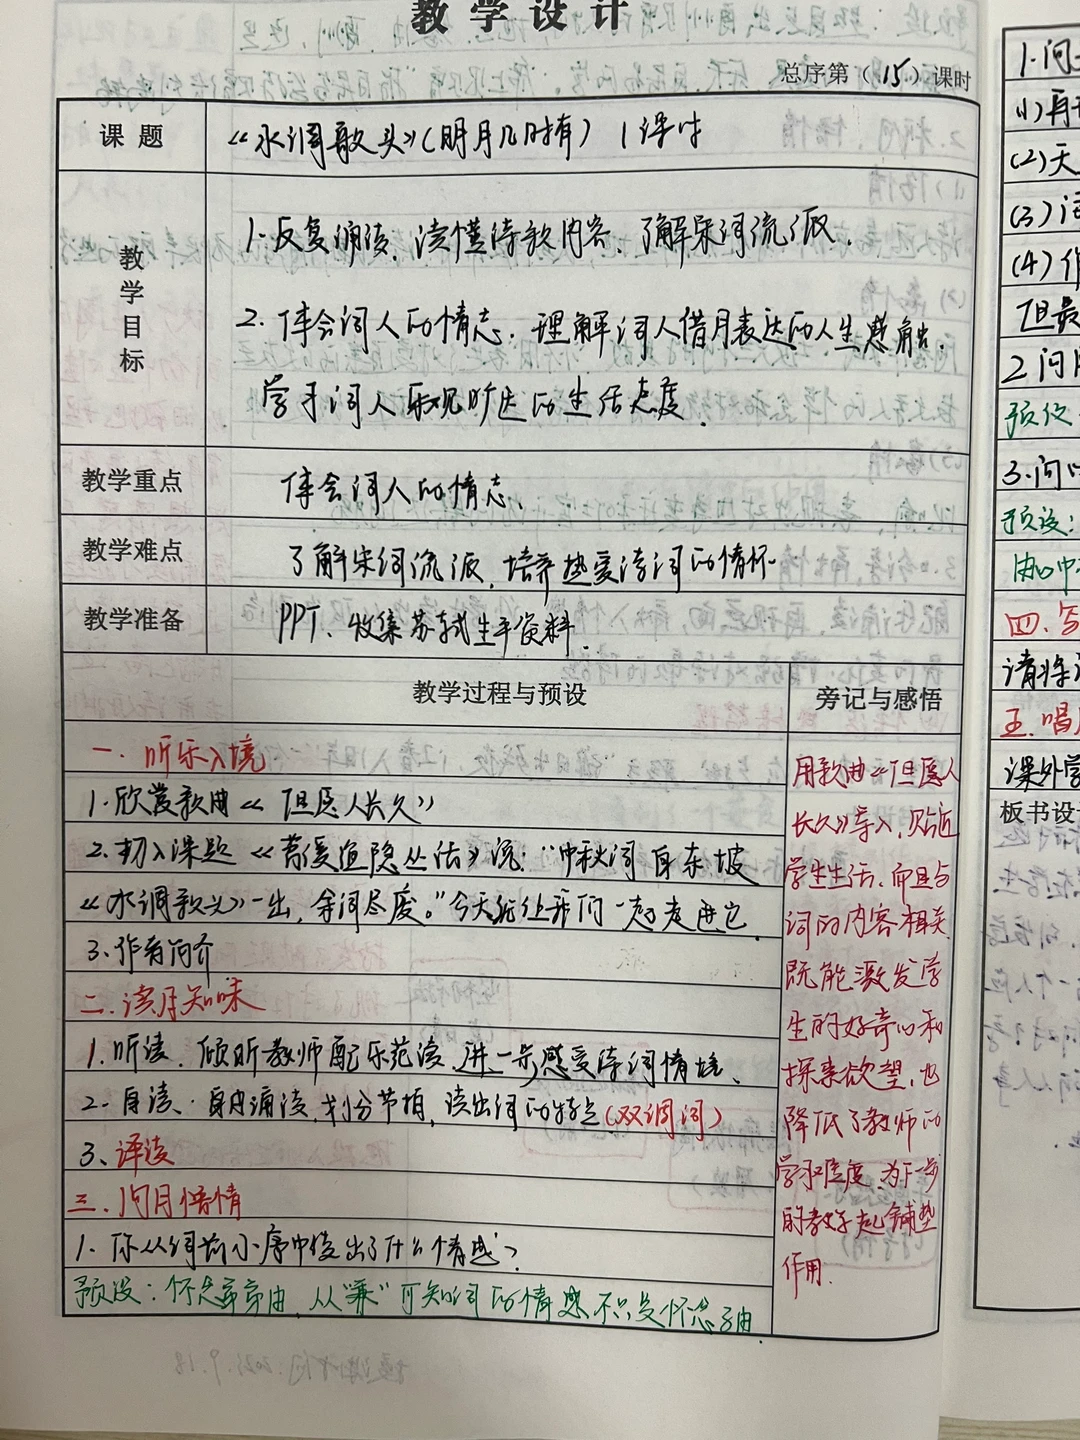 教学设计
总序第（15）课时
课题
《水调歌头》（明月几时有） 1课时
教学目标
1.反复诵读，读懂诗歌内容，了解宋词流派.
2.体会词人的情志.理解词人借月表达的人生感悟.
学习词人乐观旷达的生活态度.
教学重点
体会词人的情志.
教学难点
了解宋词流派，培养热爱诗词的情怀.
教学准备
PPT、收集苏轼生平资料.
教学过程与预设
旁记与感悟
一.听乐入境
1.欣赏歌曲《但愿人长久》
2.切入课题《苕溪渔隐丛话》说："中秋词自东坡
《水调歌头》一出，余词尽废。"今天就让我们一起走进它.
3.作者简介
二.读月知味
1.听读.倾听教师配乐范读、进一步感受诗词情境、
2.自读.自由诵读，划分节拍，读出词的特点（双调词）
3、译读
三.问月悟情
1.你从词前小序中读出了什么情感？
预设：怀念弟弟子由，从"兼"可知词的情感不只是怀念子由.
用歌曲《但愿人
长久》导入，贴近
学生生活、而且与
词的内容相关.
既能激发学
生的好奇心和
探索欲望，也
降低了教师的
学习难度，为下一步
的教学起铺垫
作用.
1.问
(1)再
(2)天
(3)
(4)作
但最
2问
预设
3.问
预设:
四.写
请将
五.唱
课外
板书设